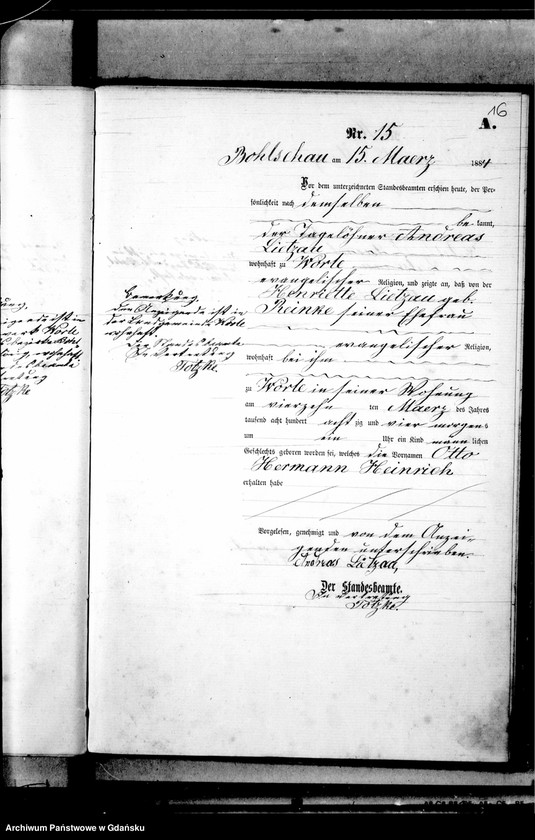 16
A.
Nr. 15
Bohlschau am 15. Maerz 1884
Vor dem unterzeichneten Standesbeamten erschien heute, der Per-
sönlichkeit nach demselben
be kannt,
der Tagelöhner Andreas
Lietzau
wohnhaft zu Worle
evangelischer Religion, und zeigte an, daß von der
Henriette Lietzau geb.
Reinke seiner Ehefrau
evangelischer Religion,
wohnhaft bei ihm
zu Worle in seiner Wohnung
am vierzehn ten Maerz des Jahres
tausend acht hundert acht zig und vier morgens
um ein Uhr ein Kind männ lichen
Geschlechts geboren worden sei, welches die Vornamen Otto
Hermann Heinrich
erhalten habe
Vorgelesen, genehmigt und von dem Anzei-
genden unterschrieben.
Andreas Lätzau,
Der Standesbeamte.
In Vertretung
Totzke.
Bemerkung.
Der Anzeigende ist in
der Landgemeinde Worle
wohnhaft.
Der Standesbeamte
In Vertretung
Totzke.
Archiwum Państwowe w Gdańsku